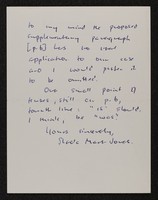 to my mind the proposed
supplementary paragraph
[p.6] has no real
application to our case
and I would prefer it
to be omitted.
One small point of
tense, still on p.6,
fourth line: "is" should,
I think, be "was".
Yours sincerely,
Sheila